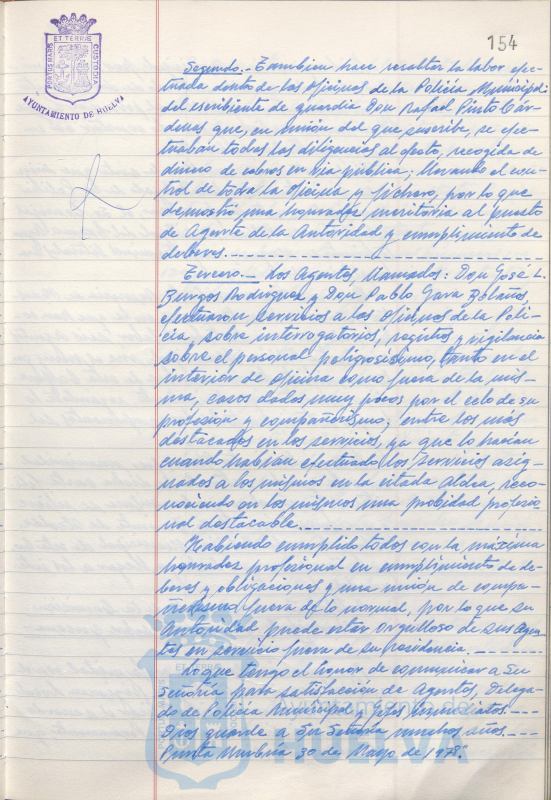 154
PORTUS MARIS ET TERRAE CUSTODIA
AYUNTAMIENTO DE HUELVA
Segundo.- Tambien hace resaltar la labor efec-
tuada dentro de las Oficinas de la Policía Municipal
del escribiente de guardia Don Rafael Pinto Cár-
denas que, en unión del que suscribe, se efec-
tuaban todas las diligencias al efecto, recogida de
dinero de cobros en via pública; llevando el con-
trol de toda la Oficina y fichero, por lo que
demostró una honradez meritoria al puesto
de Agente de la Autoridad y cumplimiento de
deberes.
Tercero.- Los Agentes, llamados: Don José L.
Burgos Rodríguez y Don Pablo Gara Bolaños,
efectuaron servicios a las oficinas de la Poli-
cía, sobre interrogatorios, registros y vigilancia
sobre el personal peligrosísimo, tanto en el
interior de oficina como fuera de la mis-
ma, casos dados muy pocos por el celo de su
profesión y compañerismo; entre los más
destacados en los servicios, ya que lo hacían
cuando habían efectuado los servicios asig-
nados a los mismos en la citada Aldea, reco-
nociendo en los mismos una probidad profesio-
nal destacable.
Habiendo cumplido todos con la máxima
honradez profesional en cumplimiento de de-
beres y obligaciones y una unión de compa-
ñerismo fuera de lo normal, por lo que su
Autoridad puede estar orgulloso de sus Agen-
tes en servicio fuera de su residencia.
Lo que tengo el honor de comunicar a Su
Señoría para satisfacción de Agentes, Delega-
do de Policía Municipal y Jefes
Dios guarde a Su Señoría muchos años.
Punta Umbría 30 de Mayo de 1978".
Ayuntamiento de
HUELVA